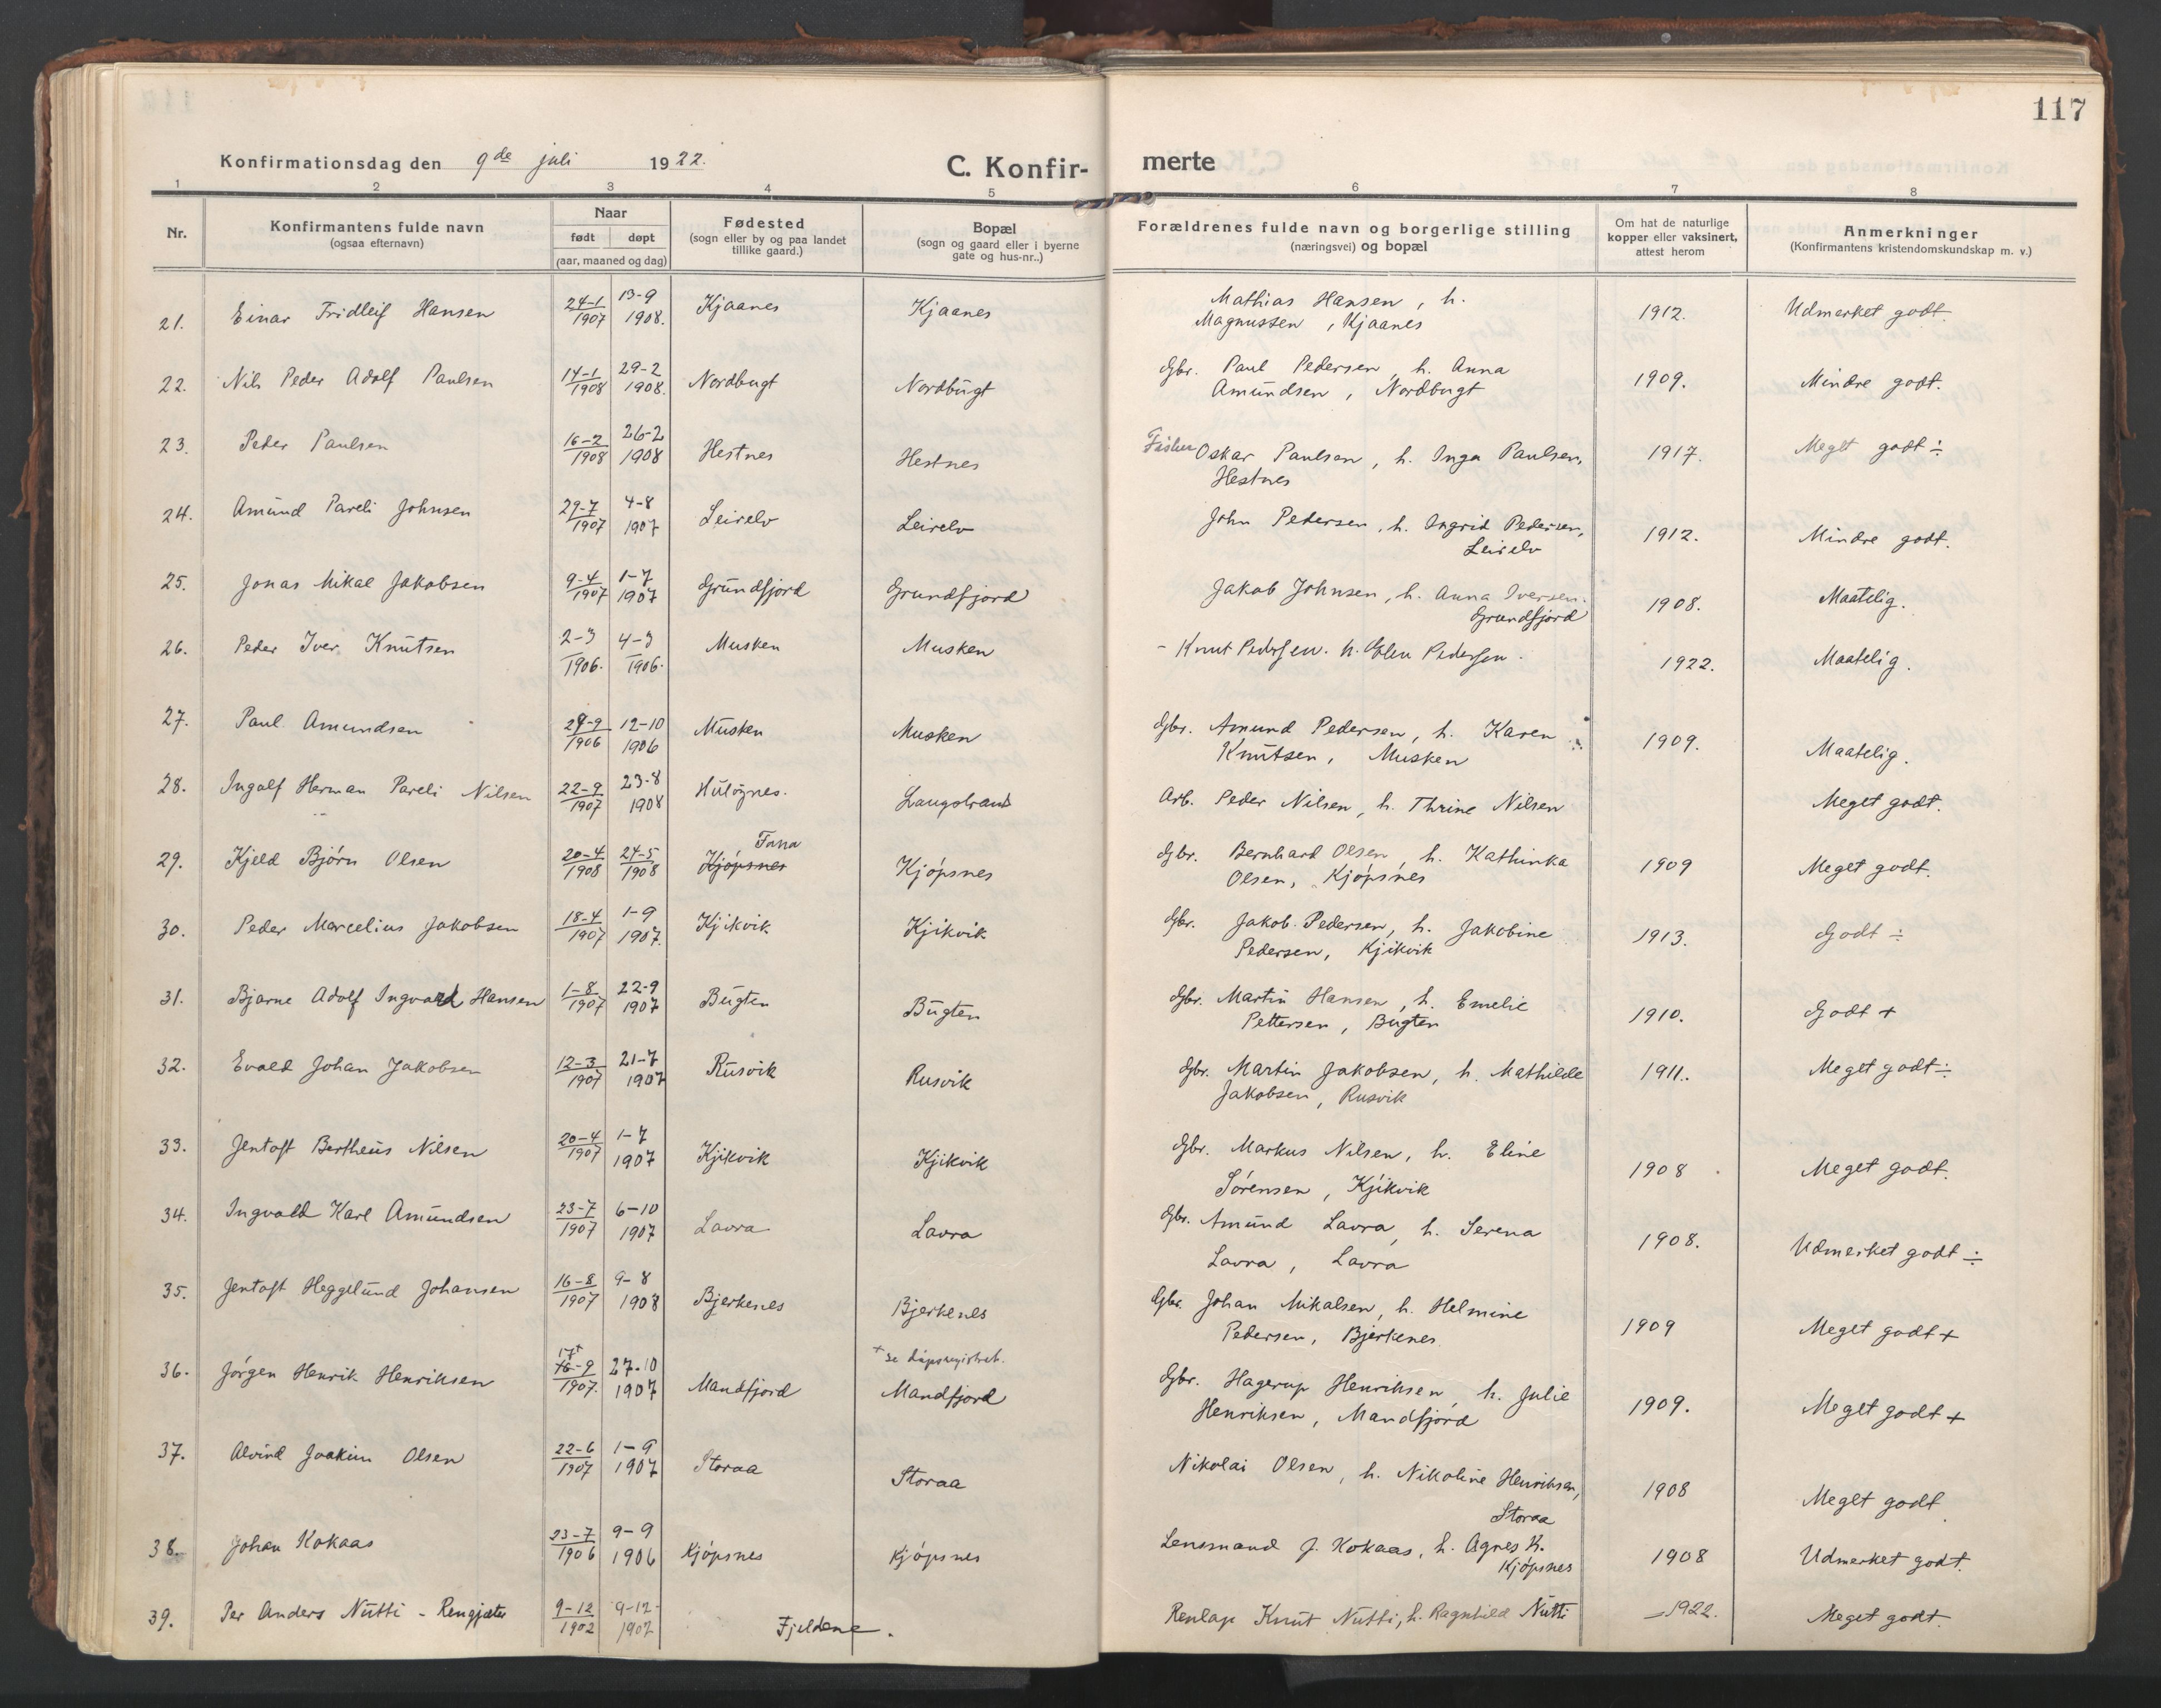 117
Konfirmationsdag den 9de juli 1922. C. Konfir- merte
1 2 3 4 5 6 7 8
Nr. Konfirmantens fulde navn (ogsaa efternavn) Naar født døpt (aar, maaned og dag) Fødested (sogn eller by og paa landet tillike gaard.) Bopæl (sogn og gaard eller i byerne gate og hus-nr..) Forældrenes fulde navn og borgerlige stilling (næringsvei) og bopæl Om hat de naturlige kopper eller vaksinert, attest herom Anmerkninger (Konfirmantens kristendomskundskap m. v.)
21. Einar Fridleif Hansen 24-1 1907 13-9 1908. Kjaanes Kjaanes Mathias Hansen, h. Magnussen, Kjaanes 1912. Udmerket godt.
22. Nils Peder Adolf Paulsen 14-1 1908 29-2 1908. Nordbugt Nordbugt Gbr. Paul Pedersen, h. Anna Amundsen, Nordbugt 1909. Mindre godt.
23. Peder Paulsen 16-2 1908 26-2 1908 Hestnes Hestnes Fisker Oskar Paulsen, h. Inga Paulsen, Hestnes 1917. Meget godt ÷
24. Amund Pareli Johnsen 29-7 1907 4-8 1907 Leirelv Leirelv John Pedersen, h. Ingrid Pedersen, Leirelv 1912. Mindre godt.
25. Jonas Mikal Jakobsen 9-4 1907 1-7 1907 Grundfjord Grundfjord Jakob Johnsen, h. Anna Iversen. Grundfjord 1908. Maatelig.
26. Peder Iver Knutsen 2-3 1906. 4-3 1906. Musken Musken - Knut Pedersen. h. Elen Pedersen. 1922. Maatelig.
27. Paul Amundsen 29-9 1906 12-10 1906 Musken Musken Gbr. Amund Pedersen, h. Karen Knutsen, Musken 1909. Maatelig.
28. Ingolf Herman Pareli Nilsen 22-9 1907 23-8 1908 Huløynes. Langstrand Arb. Peder Nilsen, h. Thrine Nilsen Meget godt.
29. Kjeld Bjørn Olsen 20-4 1908 24-5 1908 Kjøpsnes Fana Kjøpsnes Gbr. Bernhard Olsen, h. Kathinka Olsen, Kjøpsnes 1909 Meget godt.
30. Peder Marcelius Jakobsen 18-4 1907 1-9 1907. Kjikvik Kjikvik Gbr. Jakob Pedersen, h. Jakobine Pedersen, Kjikvik 1913. Godt ÷
31. Bjarne Adolf Ingvard Hansen 1-8 1907 22-9 1907 Bugten Bugten Gbr. Martin Hansen, h. Emelie Pettersen, Bugten 1910. Godt +
32. Evald Johan Jakobsen 12-3 1907 21-7 1907 Rusvik Rusvik Gbr. Martin Jakobsen, h. Mathilde Jakobsen, Rusvik 1911. Meget godt ÷
33. Jentoft Bertheus Nilsen 20-4 1907 1-7 1907 Kjikvik Kjikvik Gbr. Markus Nilsen, h. Eline Sørensen, Kjikvik 1908 Meget godt.
34. Ingvald Karl Amundsen 23-7 1907 6-10 1907 Lavra Lavra Gbr. Amund Lavra, h. Serena Lavra, Lavra 1908. Udmerket godt ÷
35. Jentoft Heggelund Johansen 16-8 1907 9-8 1908 Bjerkenes Bjerkenes Gbr. Johan Mikalsen, h. Helmine Pedersen, Bjerkenes 1909 Meget godt +
36. Jørgen Henrik Henriksen 17+ 16-9 1907. 27-10 1907 Mandfjord + se dåpsregistret. Mandfjord Gbr. Hagerup Henriksen, h. Julie Henriksen, Mandfjord 1909. Meget godt +
37. Alvind Joakim Olsen 22-6 1907 1-9 1907 Storaa Storaa Nikolai Olsen, h. Nikoline Henriksen, Storaa 1908 Meget godt.
38. Johan Kokaas 23-7 1906 9-9 1906 Kjøpsnes Kjøpsnes Lensmand J. Kokaas, h. Agnes K. Kjøpsnes 1908 Udmerket godt.
39. Per Anders Nutti - Rengjæter 9-12 1902 9-12- 1907 Fjeldene. Renlap Knut Nutti, h. Ragnhild Nutti -1922. Meget godt.